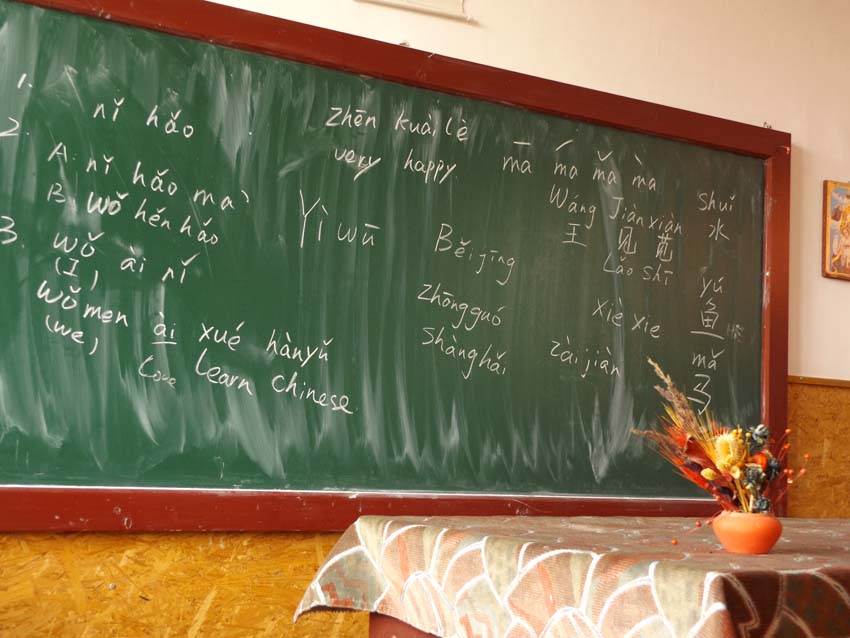 1. nǐ hǎo
2. A. nǐ hǎo ma?
B. wǒ hěn hǎo
3. wǒ ài nǐ
(I)
wǒmen ài xué hànyǔ
(we) Love Learn Chinese.
zhēn kuài lè
very happy
Yì wū
Běijīng
zhōngguó
shànghǎi
mā má mǎ mà
Wáng Jiànxiàn
王 见 苋
Lǎo Shī
xiè xie
zài jiàn
shuǐ
水
yú
鱼
mǎ
马